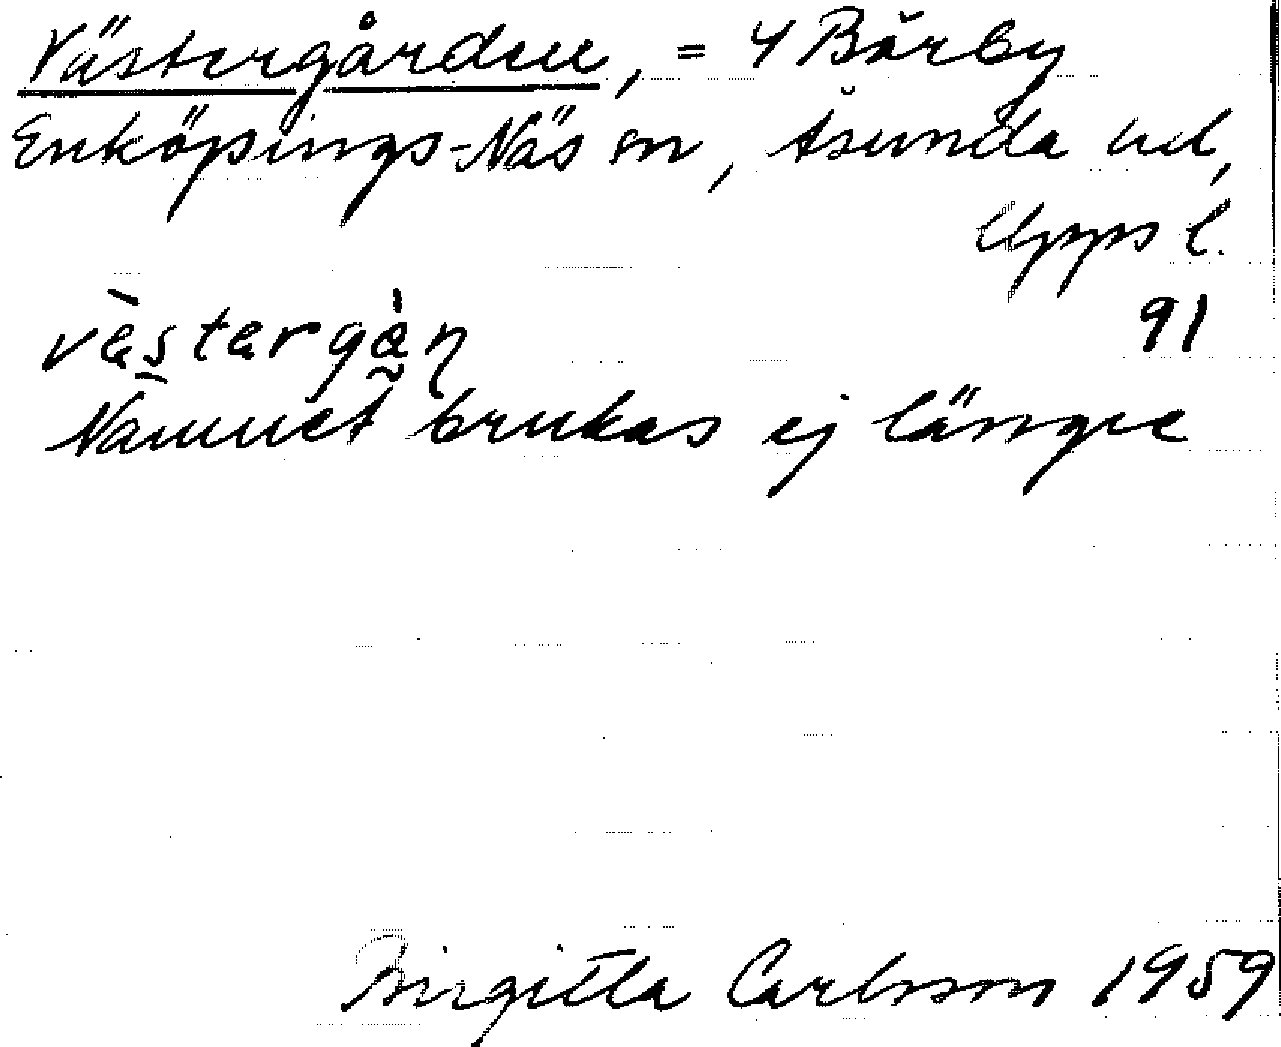 Västergården, = 4 Bärby
Enköpings-Näs sn, Åsunda hd,
Upps l.
91
vàstərgàn
Namnet brukas ej längre
Birgitta Carlsson 1959